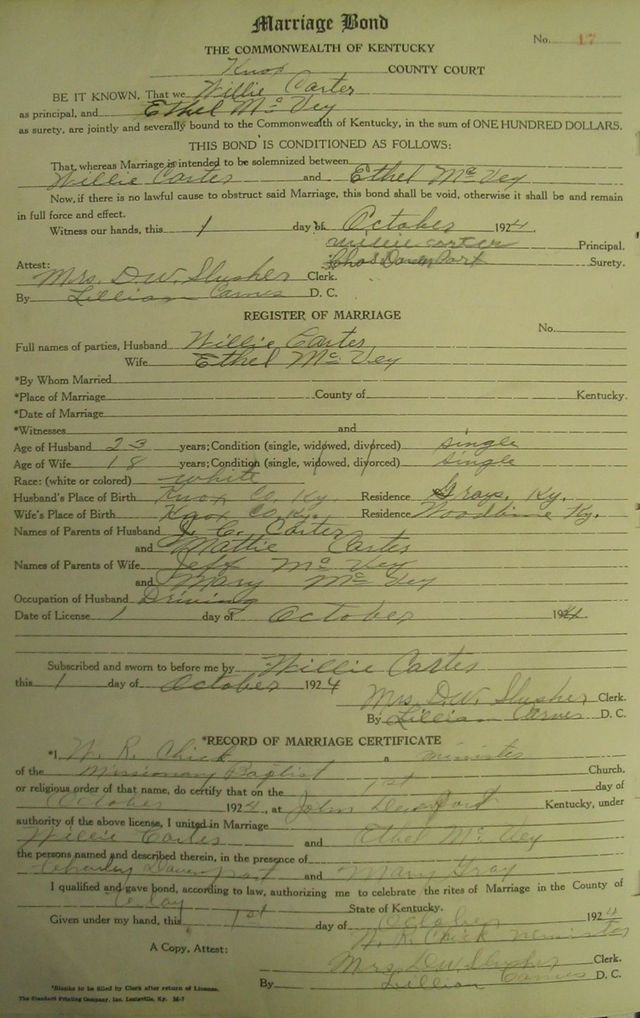 Marriage Bond
No. 17
THE COMMONWEALTH OF KENTUCKY
Knox COUNTY COURT
BE IT KNOWN, That we Willie Carter
as principal, and Ethel McVey
as surety, are jointly and severally bound to the Commonwealth of Kentucky, in the sum of ONE HUNDRED DOLLARS.
THIS BOND IS CONDITIONED AS FOLLOWS:
That, whereas Marriage is intended to be solemnized between
Willie Carter and Ethel McVey
Now, if there is no lawful cause to obstruct said Marriage, this bond shall be void, otherwise it shall be and remain
in full force and effect.
Witness our hands, this 1 day of October 1924.
Willie Carter Principal.
Surety.
Attest:
Mrs. D.W. Slusher Clerk.
By Lillian D. C.
REGISTER OF MARRIAGE
No.
Full names of parties, Husband Willie Carter
Wife Ethel McVey
*By Whom Married
*Place of Marriage County of Kentucky.
*Date of Marriage
*Witnesses and
Age of Husband 23 years; Condition (single, widowed, divorced) single
Age of Wife 18 years; Condition (single, widowed, divorced) single
Race: (white or colored) white
Husband's Place of Birth Knox Co. Ky. Residence Grays, Ky.
Wife's Place of Birth Knox Co. Ky. Residence Woodbine Ky.
Names of Parents of Husband J. C. Carter
and Mattie Carter
Names of Parents of Wife Jeff McVey
and Mary McVey
Occupation of Husband Driving
Date of License 1 day of October 1924
Subscribed and sworn to before me by Willie Carter
this 1 day of October 1924
Mrs. D.W. Slusher Clerk.
By Lillian D. C.
*RECORD OF MARRIAGE CERTIFICATE
*I, W. R. Chick a minister
of the Missionary Baptist Church,
or religious order of that name, do certify that on the 1st day of
October 1924, at John Kentucky, under
authority of the above license, I united in Marriage
Willie Carter and Ethel McVey
the persons named and described therein, in the presence of
Charley Davenport and Mary Gray
I qualified and gave bond, according to law, authorizing me to celebrate the rites of Marriage in the County of
State of Kentucky.
Given under my hand, this 1st day of October 1924
W. R. Chick
A Copy, Attest:
Mrs. D.W. Slusher Clerk.
By Lillian D. C.
*Blanks to be filled by Clerk after return of License.
The Standard Printing Company, Inc. Louisville, Ky.